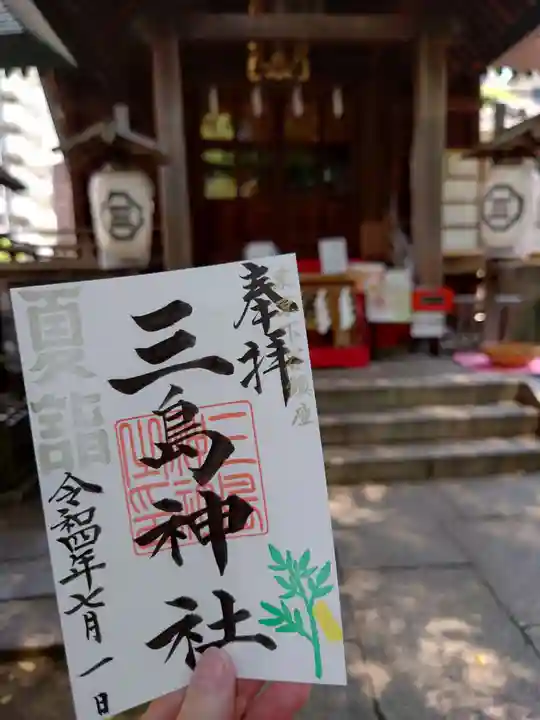 奉拝
三島神社
夏詣
令和四年七月一日
三
三